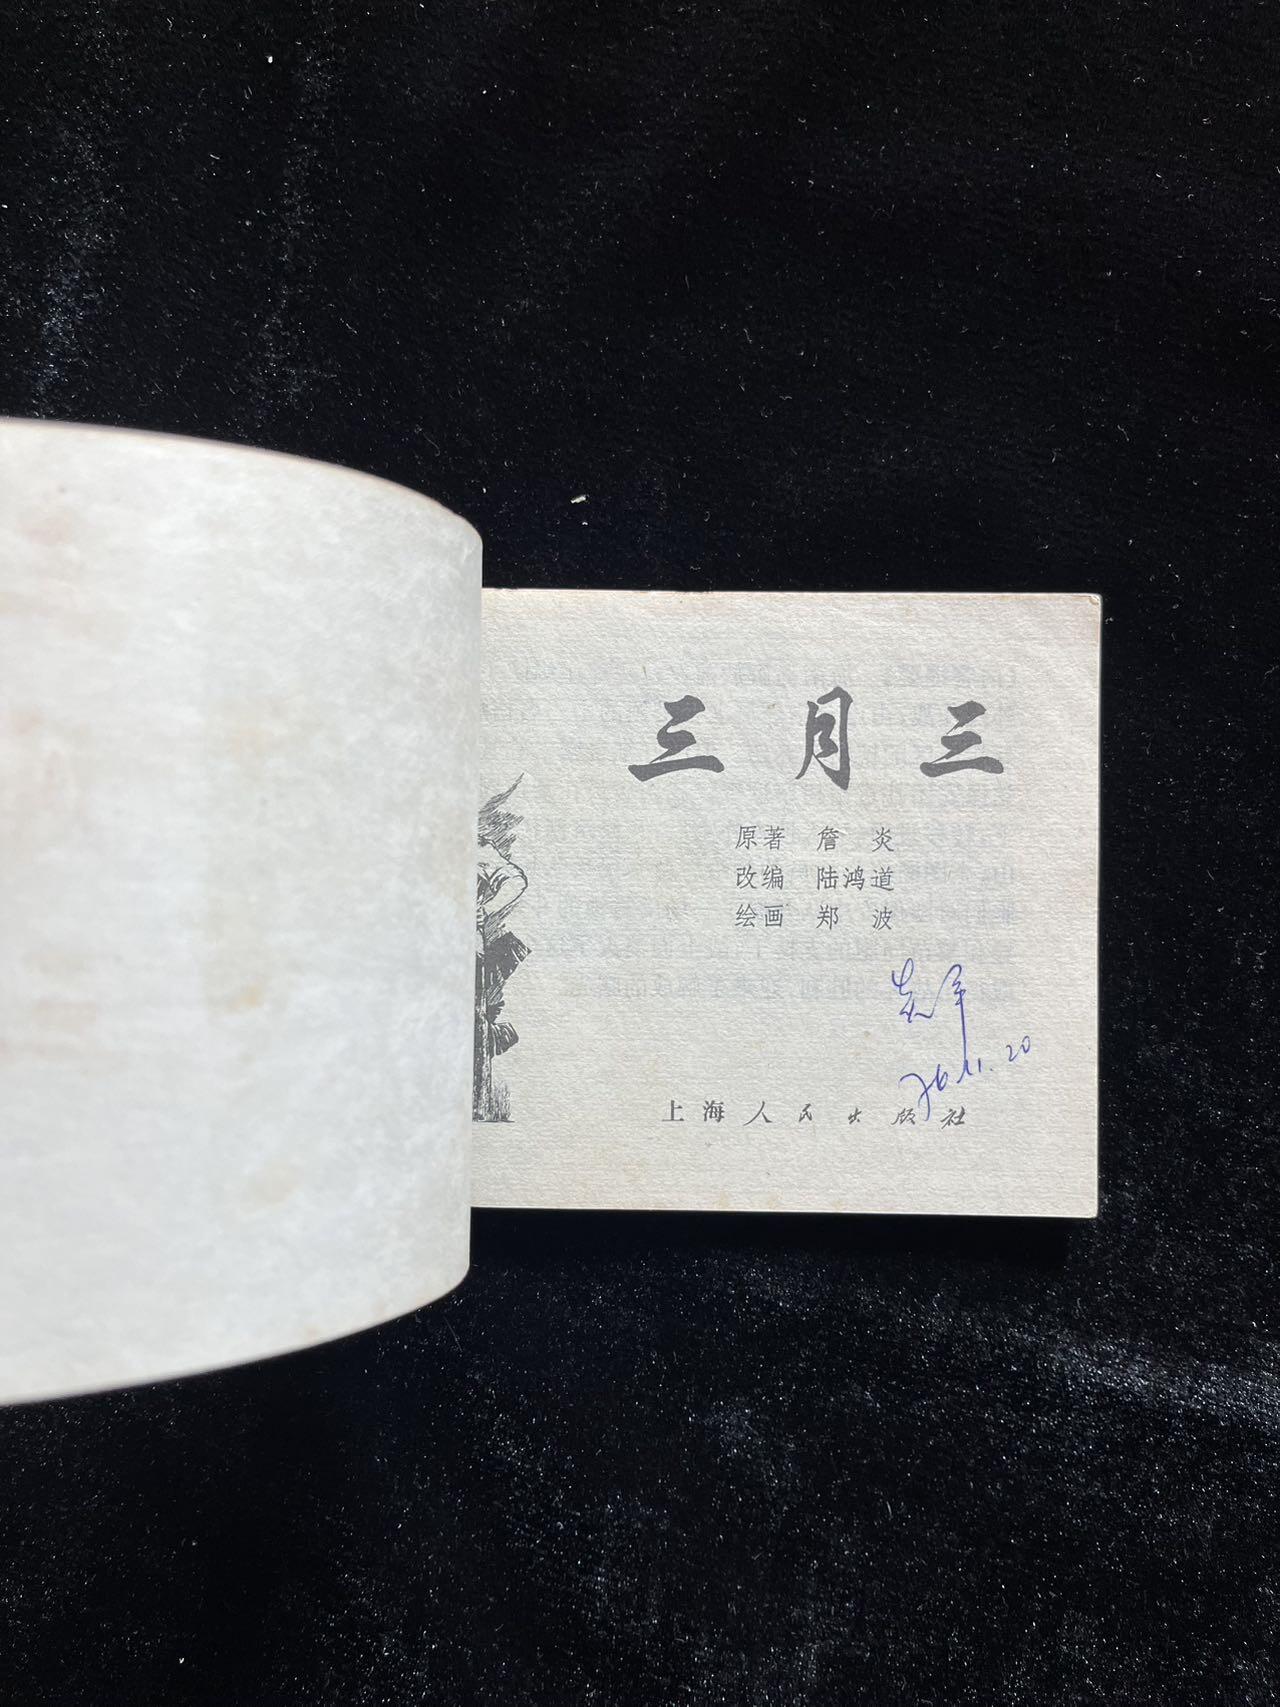 三月三
原著 詹 炎
改编 陆鸿道
绘画 郑 波
76.11.20
上海人民出版社